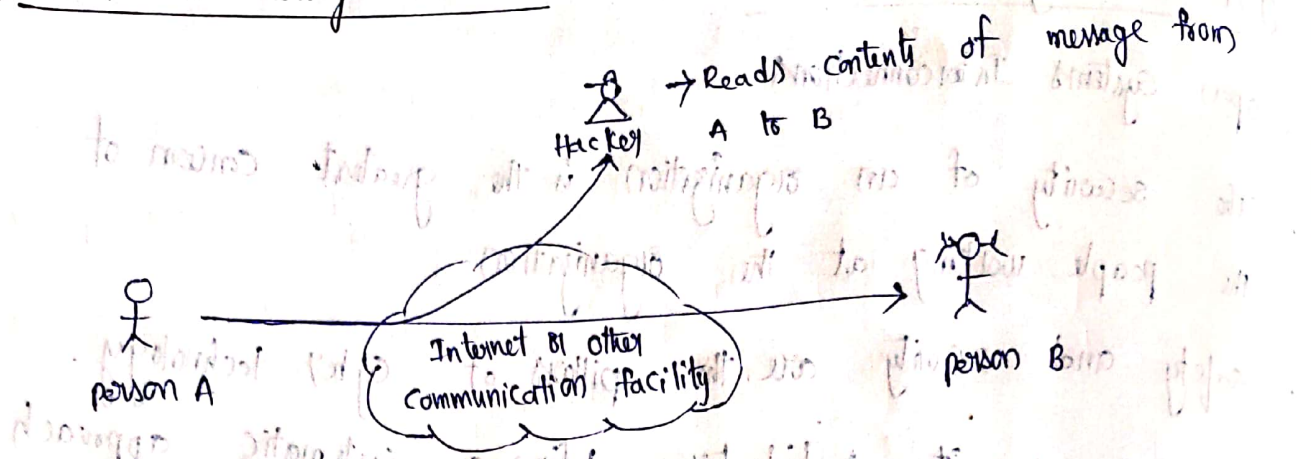 → Reads contents of message from
A to B
Hacker
Internet or other
communication facility
person A
person B